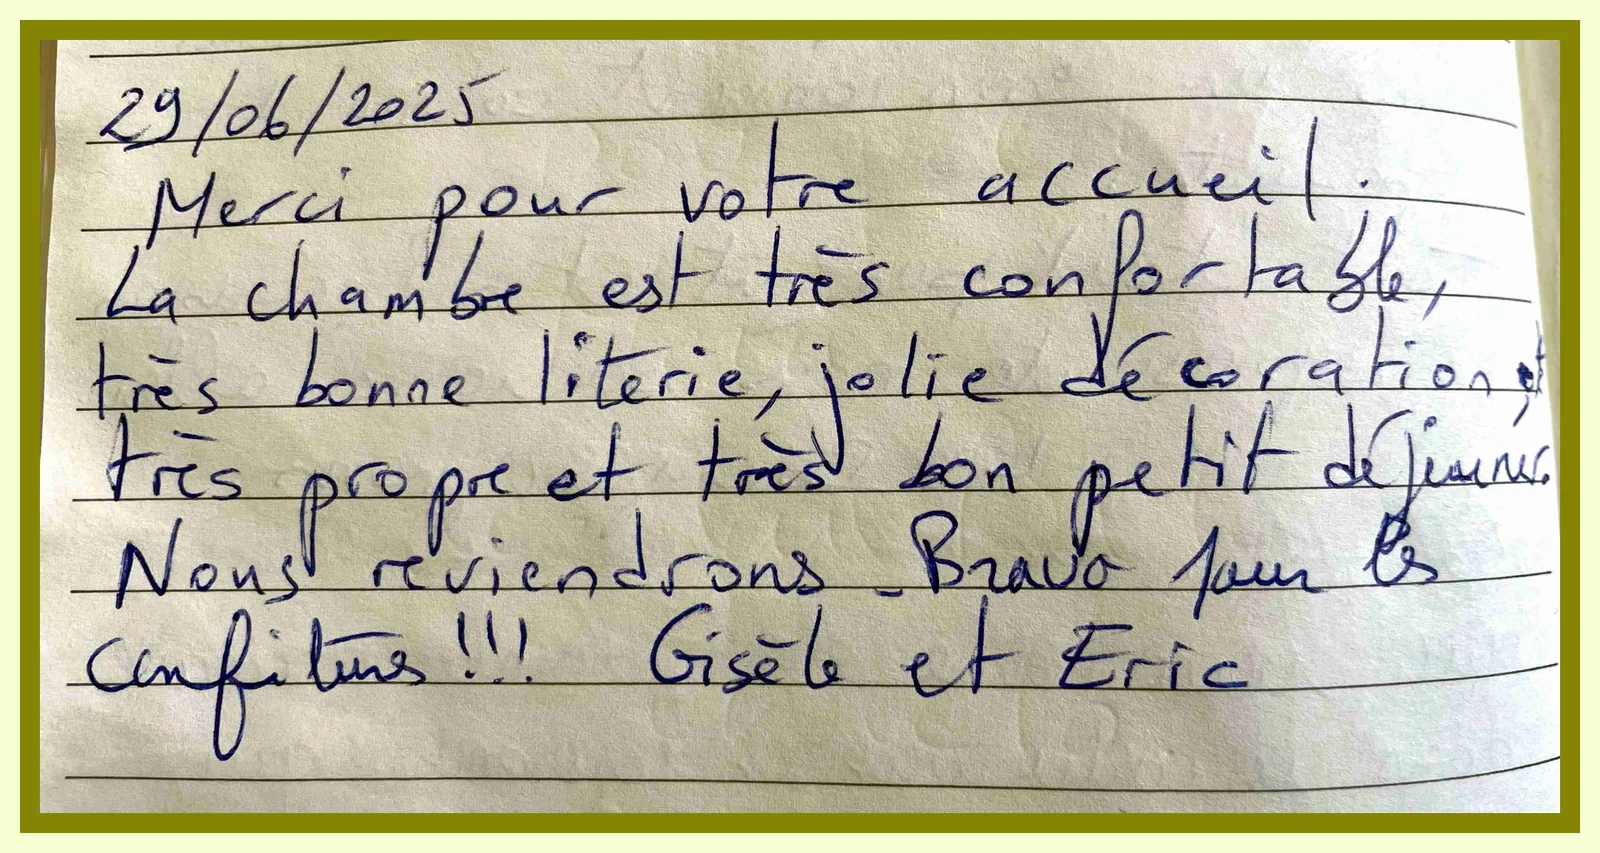 29/06/2025
Merci pour votre accueil.
La chambre est très confortable,
très bonne literie, jolie décoration, et
très propre et très bon petit déjeuner.
Nous reviendrons. Bravo pour les
confitures !!! Gisèle et Eric